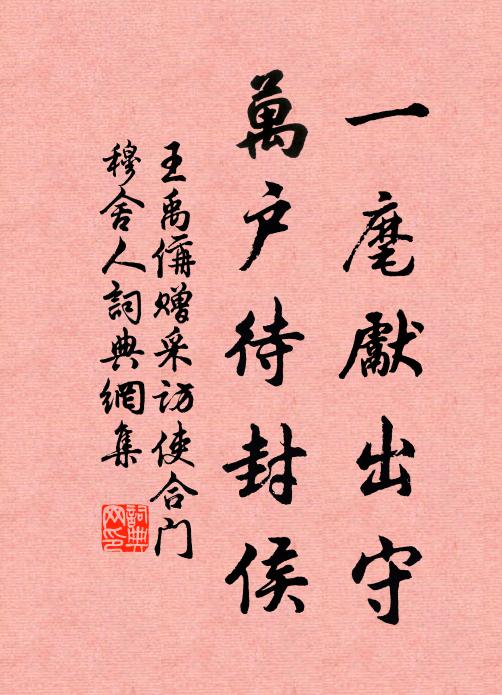 一麾獻出守
萬户待封侯
王禹偁赠采访使合门
穆舍人詞典網集
詞典
网印